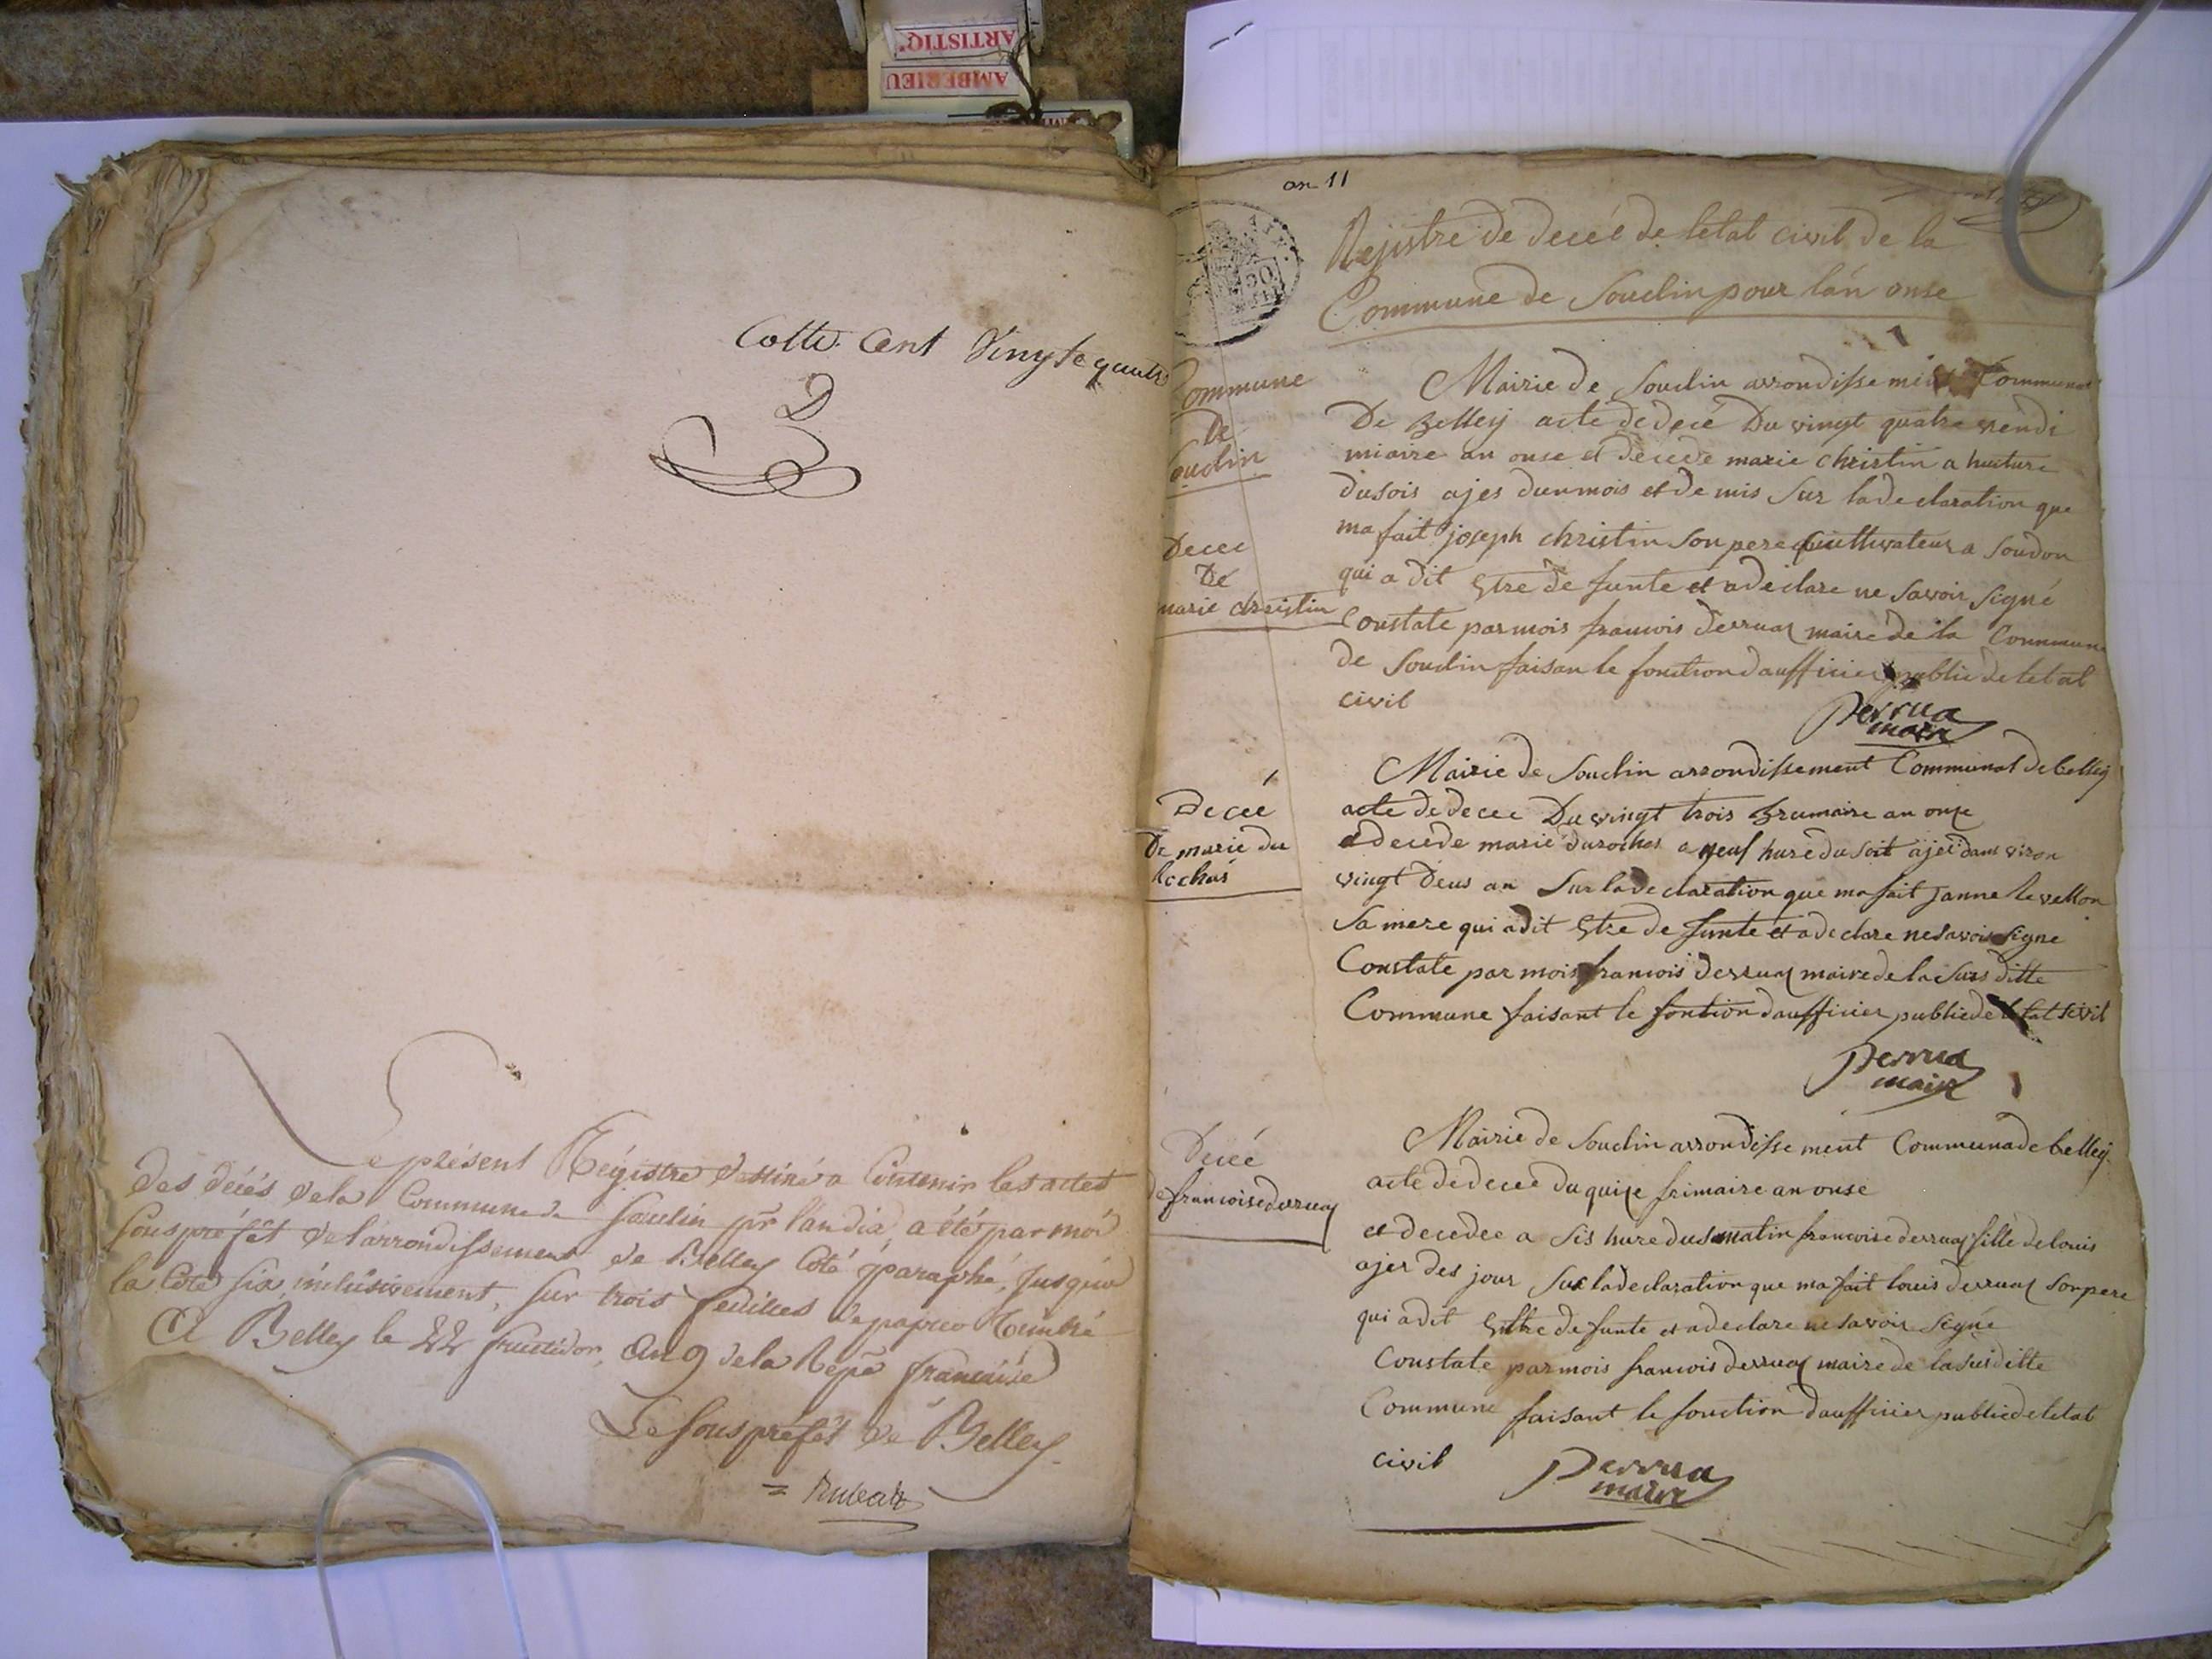 ARTISTIQ
AMBERIEU
Cotte Cent Vingte quatre
Le présent Régistre destiné a Contenir les actes
des décés de la Commune de Souclin pr l'an dix, a été par moi
sous préfèt de l'arrondissement de Belley Coté & paraphé, Jusqu'a
la Cote six, inclusivement, sur trois feuilles de papier Timbré
A Belley le 22 fructidor, An 9 de la Repe française
Le sous préfèt de Belley
an 11
Rejistre de decéé de letat civil de la
Commune de Souclin pour lan onse
Commune
De
Souclin
Mairie de Souclin arrondissement Communal
De Belley acte de decé Du vingt quatre vendi
miaire an onse et decede marie christin a huiture
du sois ajes dun mois et demis Sur la declaration que
ma fait joseph christin Son pere Cultivateur a Soudon
qui a dit Estre defunte et a declare ne Savoir Signé
Constate par mois francois derruaz maire de la Commune
de Souclin faisan le fonction daufficier public de letat
civil
Decee
De
marie christin
Derrua
maire
Mairie de Souclin arrondissement Communal de belley
acte de decee Du vingt trois Brumaire an onze
et decede marie duroches a neuf hure du soit ajeé danviron
vingt deus an Sur la declaration que ma fait janne levellon
Sa mere qui a dit Estre defunte et a declare ne Savoir Signe
Constate par mois francois derruaz maire de la Sus ditte
Commune faisant le fontion daufficier public de letat Sivil
Decee
De marie du
Rochás
Derrua
maire
Mairie de Souclin arrondissement Communa de belley
acte de decee du quize frimaire an onse
et decedee a Sis hure dus matin francoise derruaz fille de louis
ajer des jour Sur la declaration que ma fait louis derruaz Son pere
qui a dit Esttre defunte et a declare ne Savoir Signé
Constate par mois francois derruaz maire de la susditte
Commune faisant le fonction daufficier public de letat
civil
Deceé
de francoise derruaz
Derrua
maire